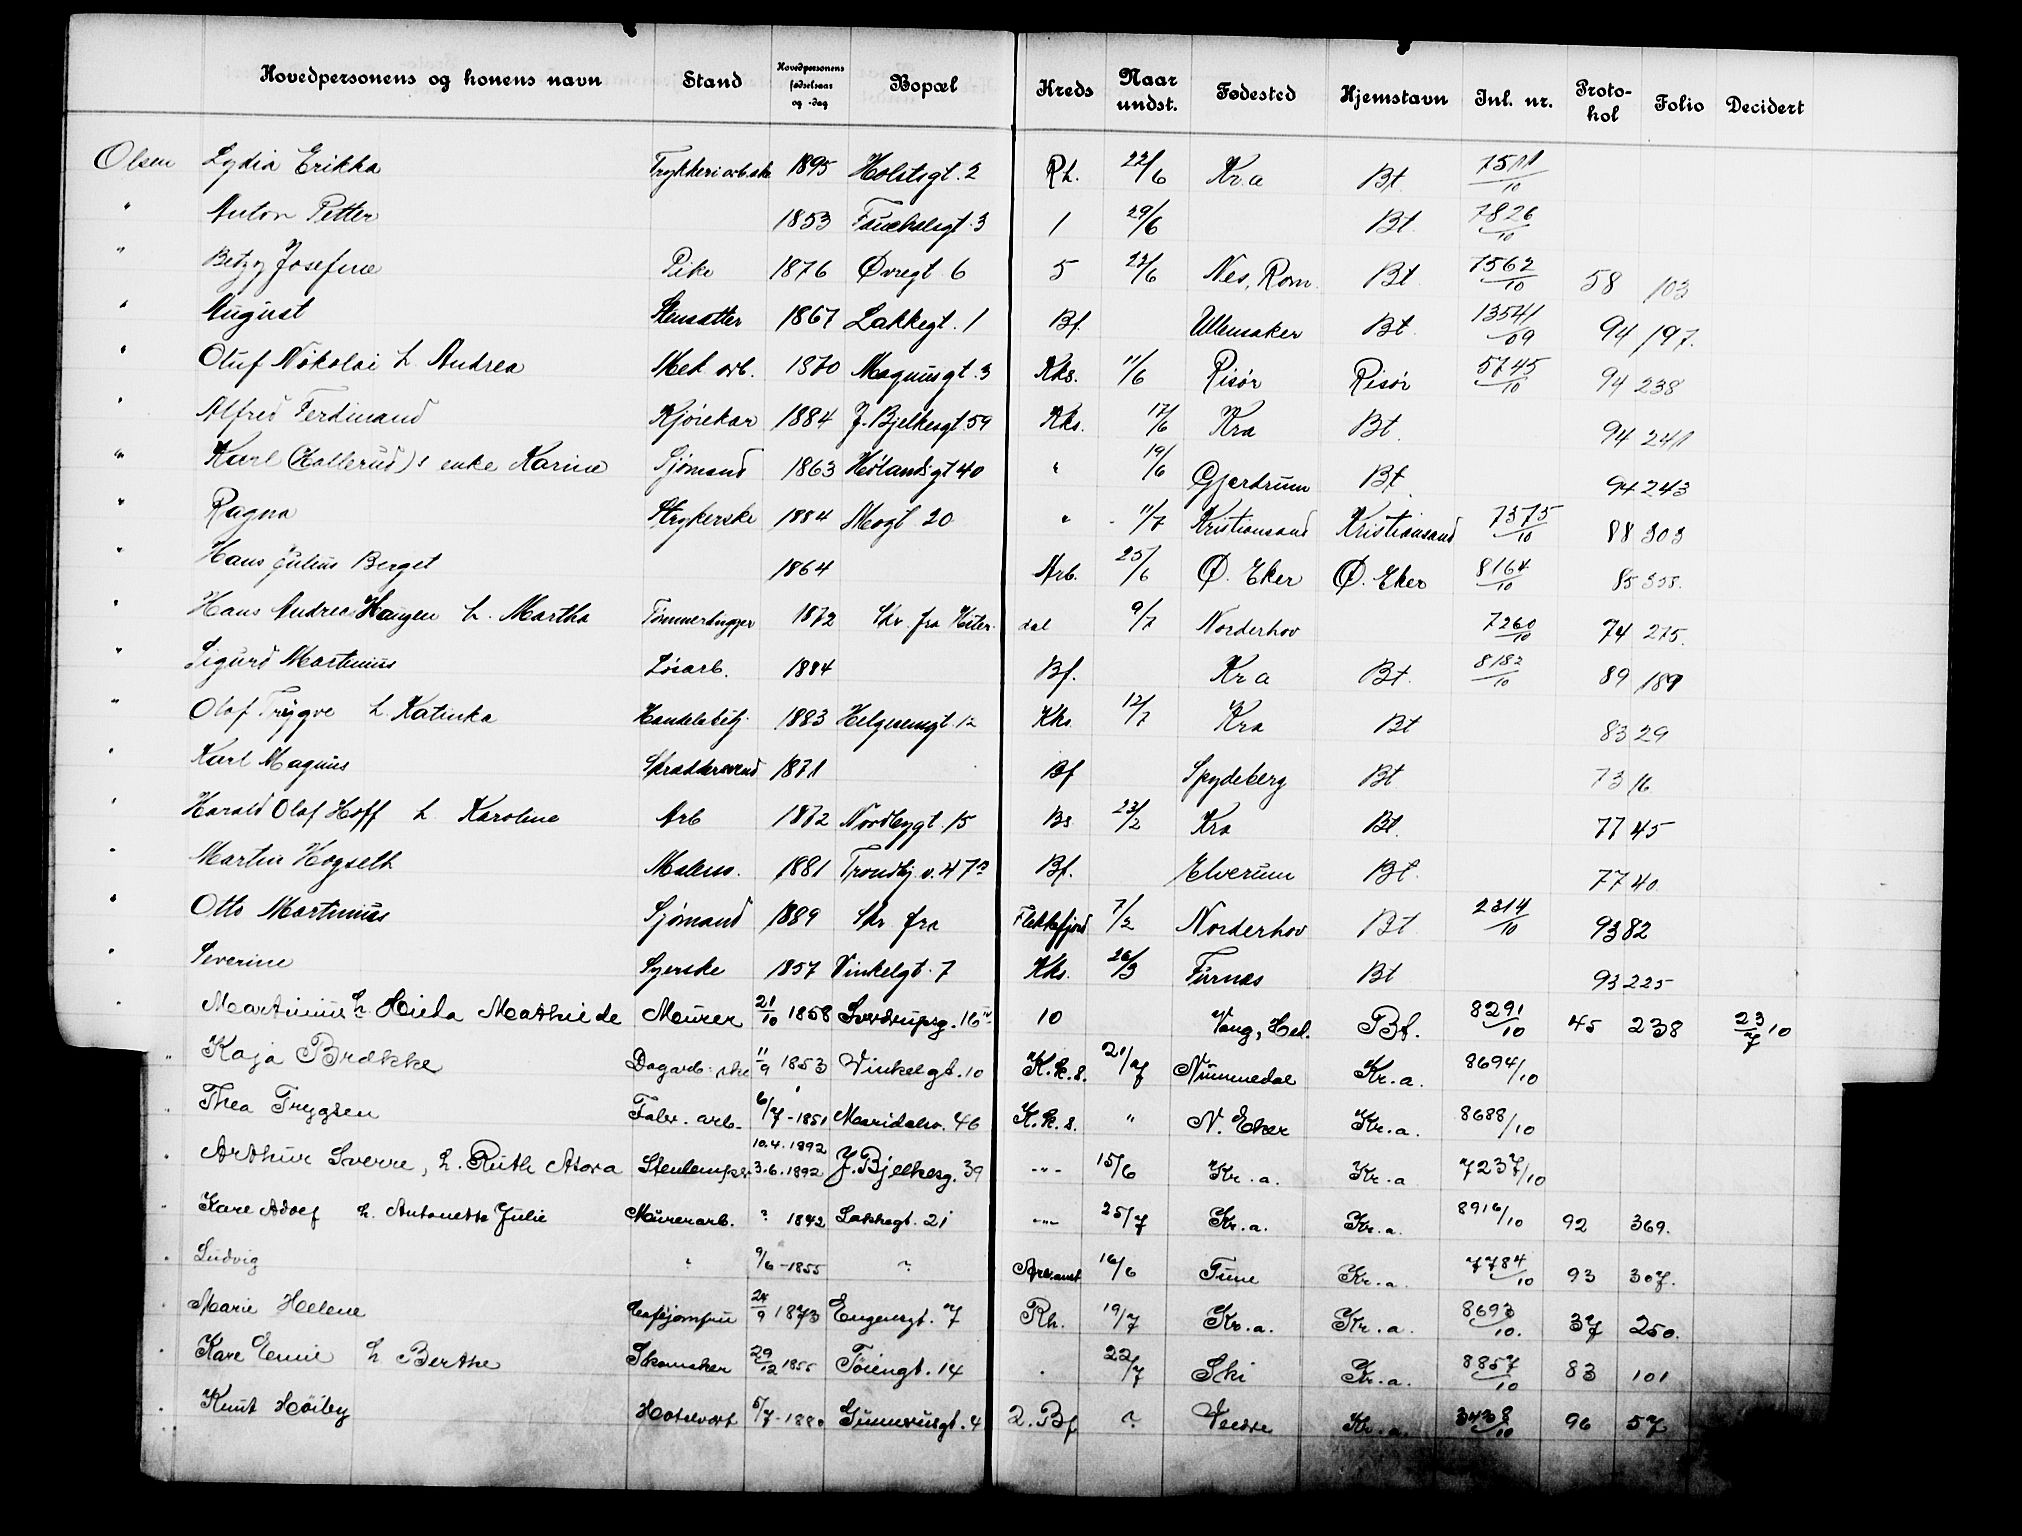 Hovedpersonens og konens navn Stand Hovedpersonens fødselsaar og -dag Bopæl Kreds Naar undst. Fødested Hjemstavn Inl. nr. Protokol Folio Decidert
Olsen Lydia Erikka Trykkeriarb.ske 1895 Holstsgt. 2 Rh. 22/6 Kr.a Bt. 7511/10
" Anton Petter 1853 Fauchalsgt. 3 1 29/6 Bt. 7826/10
" Betzy Josefine Pike 1876 Øvregt. 6 5 22/6 Nes, Rom. Bt. 7562/10 58 103
" August Stensætter 1867 Lakkegt. 1 Bf. Ullensaker Bt. 13541/09 94 197.
" Oluf Nikolai h. Andrea Mek arb. 1870 Magnusgt. 3 Kks. 11/6 Risør Risør 5745/10 94 238
" Alfred Ferdinand Kjørekar 1884 J. Bjelkesgt 59 Kks. 17/6 Kra Bt. 94 241
" Karl (Kallerud)s enke Karine Sjømand 1863 Hølandsgt 40 " 19/6 Gjerdrum Bt. 94 243
" Ragna Strykerske 1884 Mogt 20 " 11/7 Kristiansand Kristiansand 7375/10 88 303
" Hans Julius Berget 1864 Arb. 25/6 Ø. Eker Ø. Eker 8164/10 85 358.
" Hans Andreas Haugen h. Martha Tømmerhugger 1872 Skr. fra Hitterdal 9/7 Norderhov 7260/10 74 275.
" Sigurd Martinius Løsarb. 1884 Bf. Kr a Bt. 8182/10 89 189
" Olaf Trygve h. Katinka Handelsbetj. 1883 Helgesensgt. 12 Kks. 12/7 Kra Bt 83 29
" Karl Magnus Skræddersvend 1871 Bf Spydeberg Bt 73 16
" Harald Olaf Hoff h. Karoline Arb 1872 Nordbygt. 15 Bs 23/2 Kra Bt. 77 45
" Martin Høgseth Malersv. 1881 Trondhj. v. 47 Bf. Elverum Bt. 77 40.
" Otto Martinius Sjømand 1889 Skr fra Flekkefjord 7/2 Norderhov Bt 2314/10 93 82
" Severine Syerske 1857 Vinkelgt. 7 Kks. 26/3 Furnæs Bt 93 225
" Martinius h. Hilda Mathilde Murer 21/10 1858 Sverdrupsg. 16 10 Vang, Hed. Bt. 8291/10 45 238 23/7 10
" Kaja Brække Dagarb.ske 11/9 1853 Vinkelgt. 10 K.k.s. 21/7 Nummedal Kr.a. 8694/10
" Thea Trygsen Fabr. arb. 6/7-1851 Maridalsv. 46 K.k.s. " N. Eker Kr.a. 8688/10
" Arthur Sverre, h. Ruth Asora Stenlemper 10.4.1892 3.6.1892 J. Bjelkesg. 39 -"- 15/6 Kr.a. Kr.a 7237/10
" Karl Adolf h. Antonette Julie Murerarb. ? 1842 Lakkegt. 21 -"- 25/7 Kr.a. Kr.a. 8916/10 92 369.
" Ludvig " 9/6-1855 ? 16/6 Tune Kr.a. 7784/10 93 307.
" Marie Helene 24/9 1873 Eugensgt. 7 Rh. 19/7 Kr.a. Kr.a. 8693/10. 37 250.
" Karl Emil h Berthe Skomaker 29/12 1855 Tøiengt. 14 " 22/7 Ski Kr.a. 8857/10 83 101
" Knut Høiby Hotelvært 5/7-1880 Gunnerusgt. 4 2. Bf ? Vestre Kr.a. 3438/10 96 57